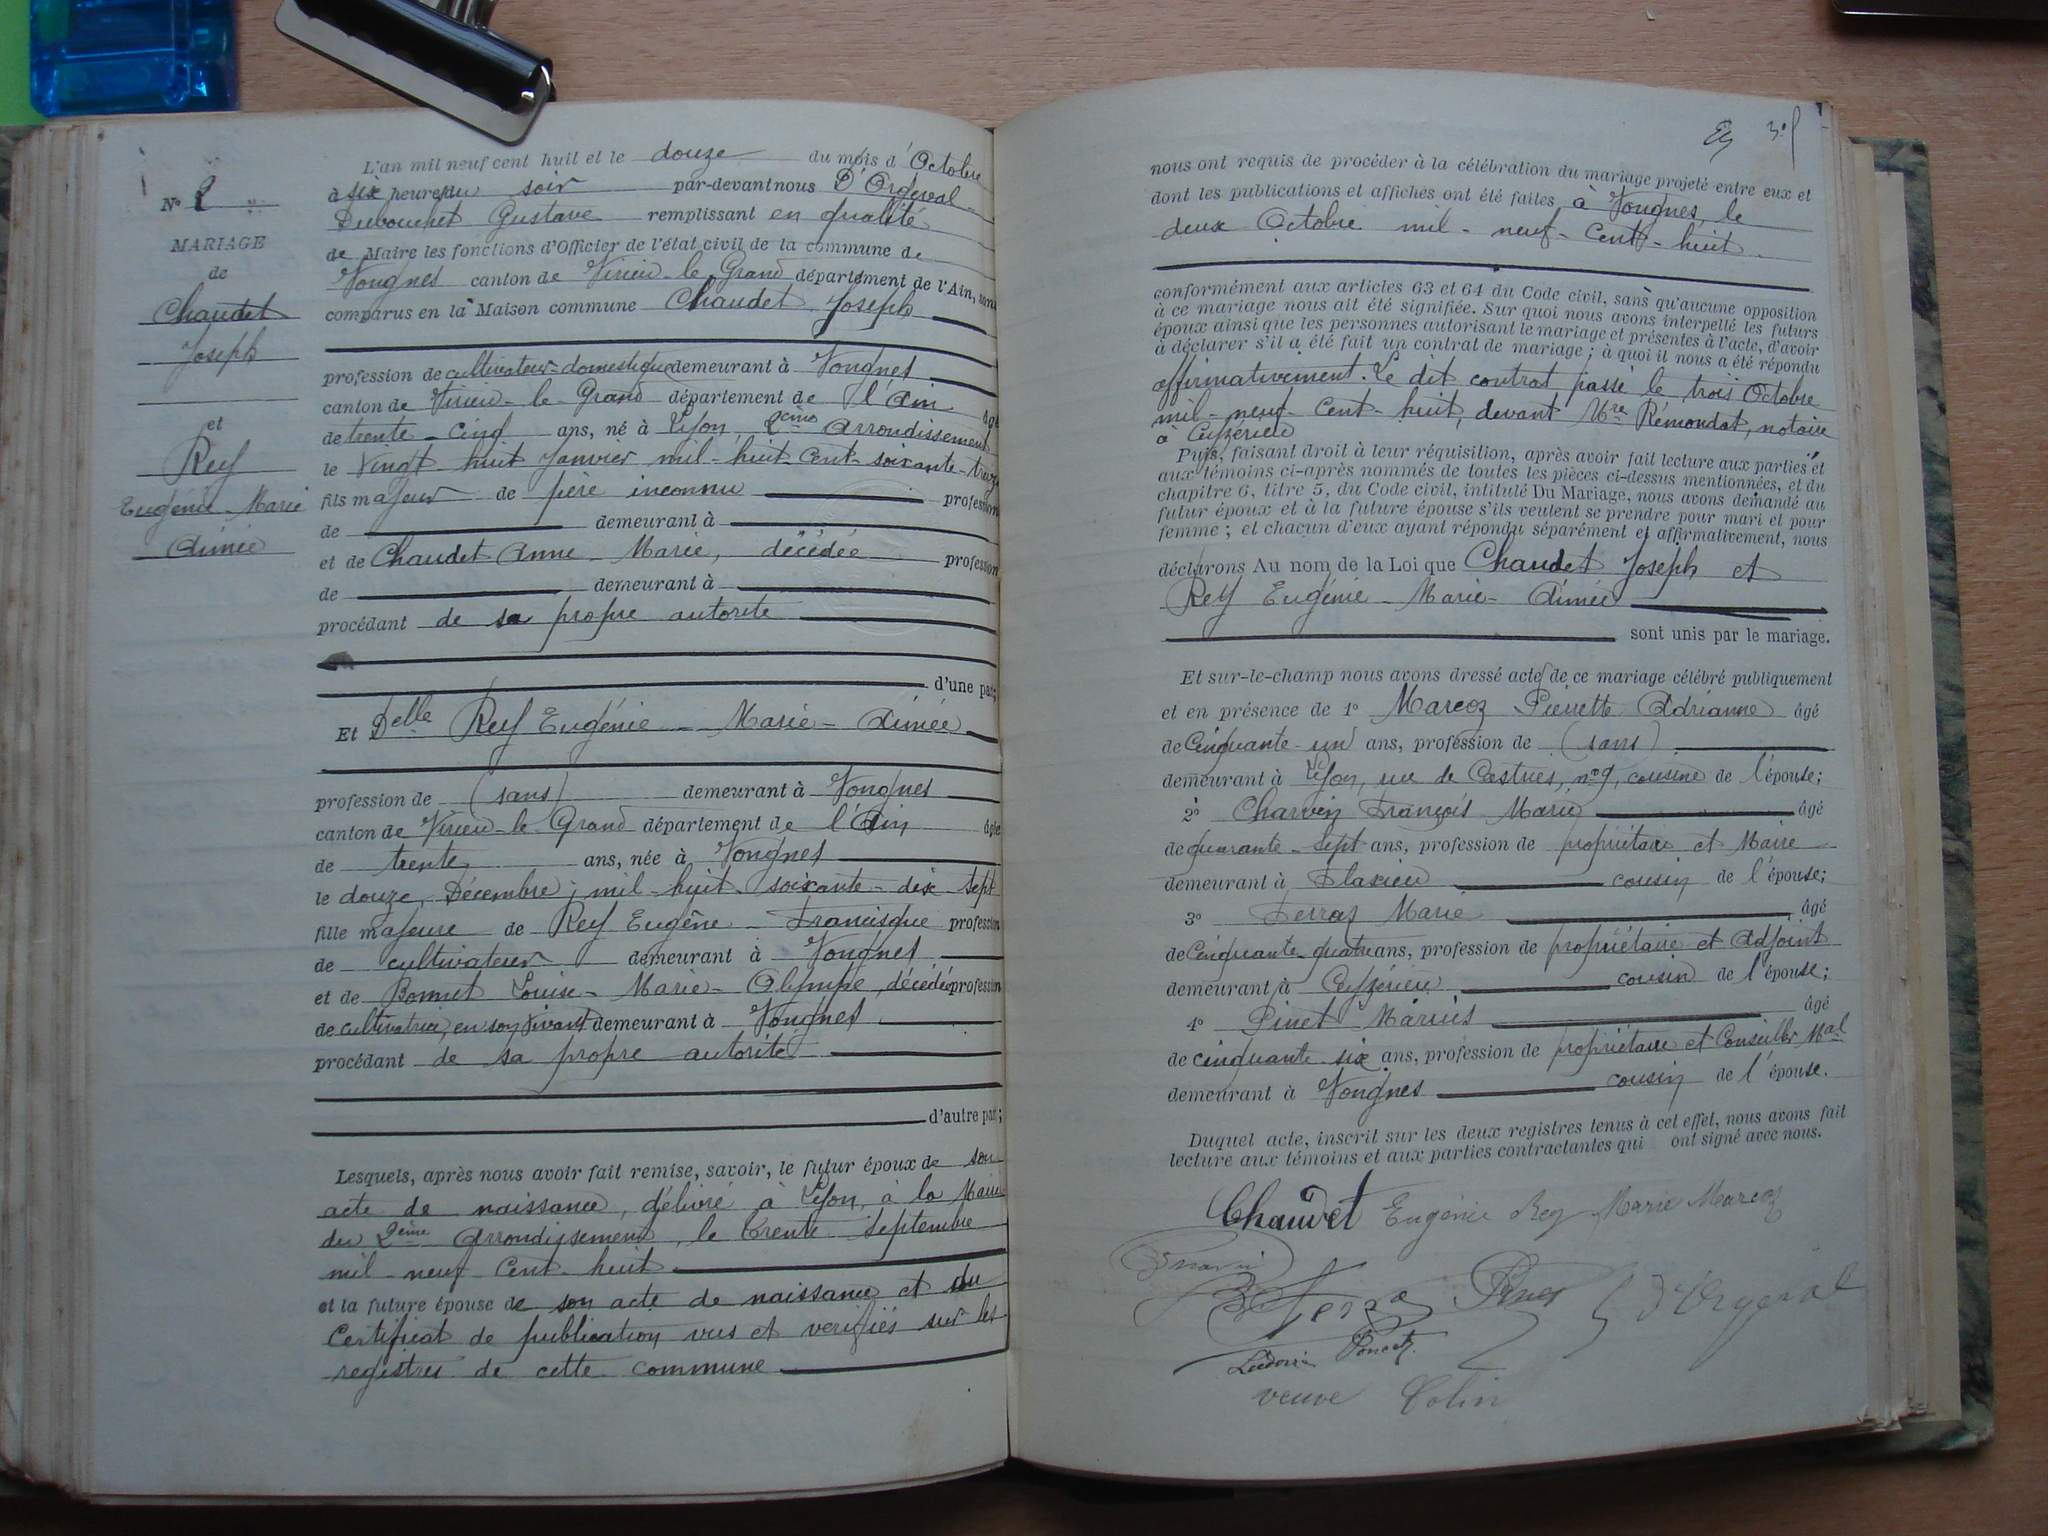 N° 2
MARIAGE
de
Chaudet
Joseph
et
Rey
Eugénie-Marie
Aimée
L'an mil neuf cent huit et le douze du mois d'Octobre
à six heures du soir par-devant nous D'Orgeval
Dubouchet Gustave remplissant en qualité
de Maire les fonctions d'Officier de l'état civil de la commune de
Vongnes canton de Virieu-le-Grand département de l'Ain, sont
comparus en la Maison commune Chaudet Joseph
profession de cultivateur-domestique demeurant à Vongnes
canton de Virieu-le-Grand département de l'Ain âgé
de trente-cinq ans, né à Lyon, 2ème Arrondissement
le vingt-huit Janvier mil-huit-cent-soixante-treize
fils majeur de père inconnu profession
de demeurant à
et de Chaudet Anne-Marie, décédée profession
de demeurant à
procédant de sa propre autorité
d'une part;
Et Delle Rey Eugénie-Marie-Aimée
profession de (sans) demeurant à Vongnes
canton de Virieu-le-Grand département de l'Ain âgée
de trente ans, née à Vongnes
le douze Décembre, mil-huit-soixante-dix-sept
fille majeure de Rey Eugène-Francisque profession
de cultivateur demeurant à Vongnes
et de Bonnet Louise-Marie-Olympe, décédée profession
de cultivatrice, en son vivant demeurant à Vongnes
procédant de sa propre autorité
d'autre part;
Lesquels, après nous avoir fait remise, savoir, le futur époux de son
acte de naissance, délivré à Lyon, à la Mairie
du 2ème Arrondissement, le trente Septembre
mil-neuf-cent-huit
et la future épouse de son acte de naissance et du
certificat de publication, vus et vérifiés sur les
registres de cette commune
nous ont requis de procéder à la célébration du mariage projeté entre eux et
dont les publications et affiches ont été faites à Vongnes, le
deux Octobre mil-neuf-cent-huit
conformément aux articles 63 et 64 du Code civil, sans qu'aucune opposition
à ce mariage nous ait été signifiée. Sur quoi nous avons interpellé les futurs
époux ainsi que les personnes autorisant le mariage et présentes à l'acte, d'avoir
à déclarer s'il a été fait un contrat de mariage; à quoi il nous a été répondu
affirmativement. Le dit contrat passé le trois Octobre
mil-neuf-cent-huit, devant Mre Rémondat, notaire
à Ceyzérieu
Puis, faisant droit à leur réquisition, après avoir fait lecture aux parties et
aux témoins ci-après nommés de toutes les pièces ci-dessus mentionnées, et du
chapitre 6, titre 5, du Code civil, intitulé Du Mariage, nous avons demandé au
futur époux et à la future épouse s'ils veulent se prendre pour mari et pour
femme; et chacun d'eux ayant répondu séparément et affirmativement, nous
déclarons Au nom de la Loi que Chaudet Joseph et
Rey Eugénie-Marie-Aimée
sont unis par le mariage.
Et sur-le-champ nous avons dressé acte de ce mariage célébré publiquement
et en présence de 1° Marcoz Pierrette Adrianne âgé
de cinquante-un ans, profession de (sans)
demeurant à Lyon, rue de Castries, n° 9, cousine de l'épouse;
2° Charvin François Marie âgé
de quarante-sept ans, profession de propriétaire et Maire
demeurant à Flaxieu cousin de l'épouse;
3° Ferraz Marie âgé
de cinquante-quatre ans, profession de propriétaire et Adjoint
demeurant à Ceyzérieu cousin de l'épouse;
4° Pinet Marius âgé
de cinquante-six ans, profession de propriétaire et Conseiller Mal
demeurant à Vongnes cousin de l'épouse.
Duquel acte, inscrit sur les deux registres tenus à cet effet, nous avons fait
lecture aux témoins et aux parties contractantes qui ont signé avec nous.
Chaudet Eugénie Rey Marie Marcoz
Pinet d'Orgeval
Poncet
veuve Colin